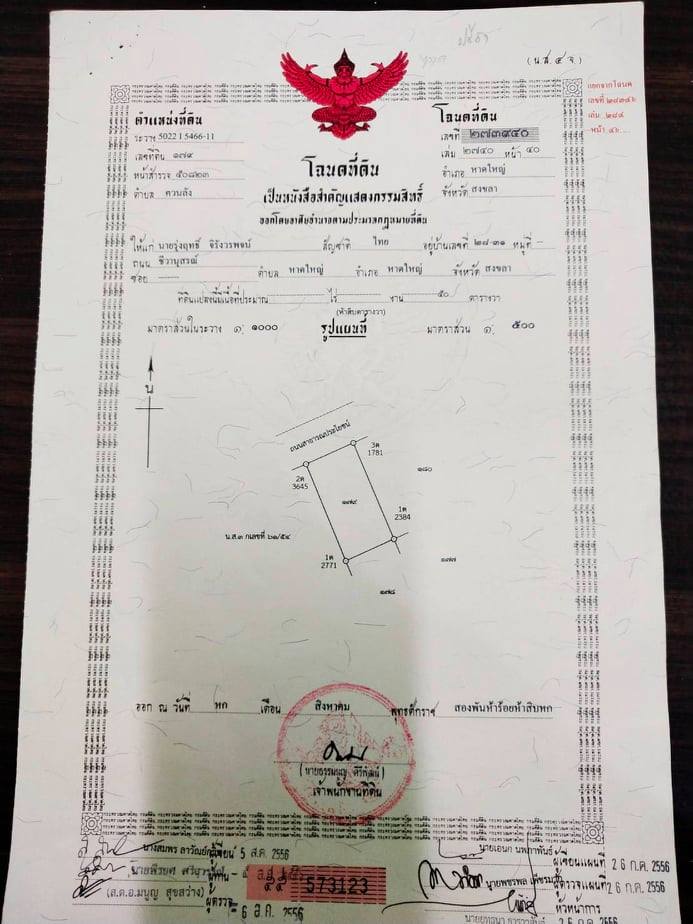 (น.ส.๔ จ)
ออกจากโฉนด
ตำแหน่งที่ดิน
ระวาง 5022 I 5466-11
เลขที่ดิน ๑๗๙
หน้าสำรวจ ๕๐๘๒๓
ตำบล ควนลัง
โฉนดที่ดิน
เลขที่ ๒๗๓๙๔๐
เล่ม ๒๗๔๐ หน้า ๔๐
อำเภอ หาดใหญ่
จังหวัด สงขลา
โฉนดที่ดิน
เป็นหนังสือสำคัญแสดงกรรมสิทธิ์
ออกโดยอาศัยอำนาจตามประมวลกฎหมายที่ดิน
ให้แก่ นายรุ่งฤทธิ์ จิรังวรพจน์ สัญชาติ ไทย อยู่บ้านเลขที่ ๒๘-๓๑ หมู่ที่ -
ถนน ชีวานุสรณ์ ตำบล หาดใหญ่ อำเภอ หาดใหญ่ จังหวัด สงขลา
ซอย
ที่ดินแปลงนี้มีเนื้อที่ประมาณ ไร่ งาน ๕๐ ตารางวา
(ห้าสิบตารางวา)
มาตราส่วนในระวาง ๑: ๑๐๐๐ รูปแผนที่ มาตราส่วน ๑: ๕๐๐
น
ถนนสาธารณประโยชน์
3ด
1781
2ด
3645
๑๘๐
๑๗๙
1ด
2384
น.ส.๓ ก เลขที่ ๖๑/๕๔
1ด
2771
๑๗๗
๑๗๘
ออก ณ วันที่ หก เดือน สิงหาคม พุทธศักราช สองพันห้าร้อยห้าสิบหก
(นายธรรมนูญ ศิริพัฒน์)
เจ้าพนักงานที่ดิน
ผู้เขียน 5 ส.ค. 2556
ผู้ทาน
(ส.ต.อ.มนูญ สุขสว่าง)
ผู้ตรวจ 6 ส.ค. 2556
573123
นายเอนก นพภาพันธ์ ผู้เขียนแผนที่ 26 ก.ค. 2556
ผู้ตรวจแผนที่ 26 ก.ค. 2556
หัวหน้าการ